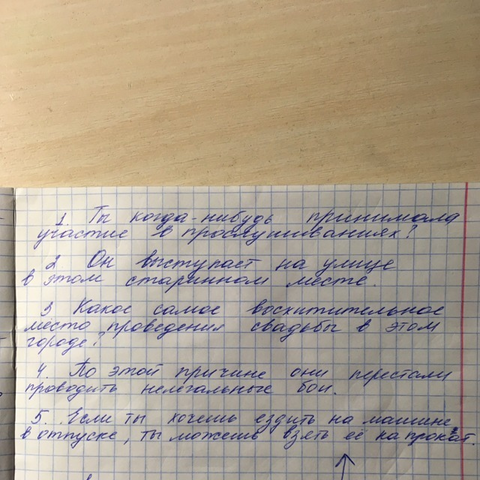 1 Ты когда-нибудь принимала
участие в прослушиваниях?
2 Он выступает на улице
в этом старинном месте.
3 Какое самое восхитительное
место проведения свадьбы в этом
городе?
4. По этой причине они перестали
проводить нелегальные бои.
5. Если ты хочешь ездить на машине
в отпуске, ты можешь взять её на прокат.